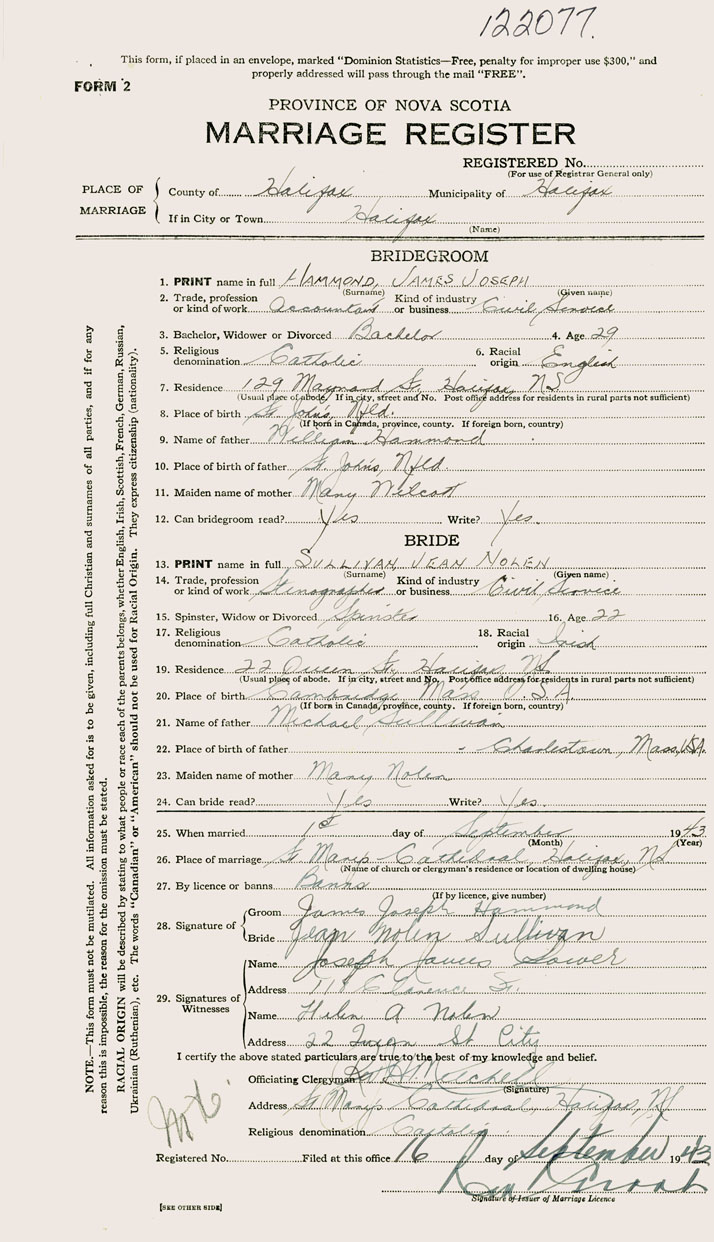 122077.
This form, if placed in an envelope, marked "Dominion Statistics—Free, penalty for improper use $300," and
properly addressed will pass through the mail "FREE".
FORM 2
PROVINCE OF NOVA SCOTIA
MARRIAGE REGISTER
REGISTERED No.
(For use of Registrar General only)
PLACE OF MARRIAGE
County of Halifax Municipality of Halifax
If in City or Town Halifax
(Name)
BRIDEGROOM
1. PRINT name in full HAMMOND, JAMES JOSEPH
(Surname) (Given name)
2. Trade, profession or kind of work Accountant Kind of industry or business Civil Service
3. Bachelor, Widower or Divorced Bachelor 4. Age 29
5. Religious denomination Catholic 6. Racial origin English
7. Residence 129 Maynard St. Halifax, NS
(Usual place of abode. If in city, street and No. Post office address for residents in rural parts not sufficient)
8. Place of birth St. John's, Nfld.
(If born in Canada, province, county. If foreign born, country)
9. Name of father William Hammond
10. Place of birth of father St. John's, Nfld
11. Maiden name of mother Mary Wilcott
12. Can bridegroom read? Yes Write? Yes.
BRIDE
13. PRINT name in full SULLIVAN, JEAN NOLEN
(Surname) (Given name)
14. Trade, profession or kind of work Stenographer Kind of industry or business Civil Service
15. Spinster, Widow or Divorced Spinster 16. Age 22
17. Religious denomination Catholic 18. Racial origin Irish
19. Residence 22 Queen St. Halifax NS
(Usual place of abode. If in city, street and No. Post office address for residents in rural parts not sufficient)
20. Place of birth Cambridge Mass U.S.A.
(If born in Canada, province, county. If foreign born, country)
21. Name of father Michael Sullivan
22. Place of birth of father - Charlestown, Mass, USA.
23. Maiden name of mother Mary Nolen
24. Can bride read? Yes Write? Yes.
25. When married 1st day of September 1943
(Month) (Year)
26. Place of marriage St Mary's Cathedral, Halifax, NS
(Name of church or clergyman's residence or location of dwelling house)
27. By licence or banns Banns
(If by licence, give number)
28. Signature of
Groom James Joseph Hammond
Bride Jean Nolen Sullivan
29. Signatures of Witnesses
Name Joseph James
Address Clarence St.
Name Helen A Nolen
Address 22 St City
I certify the above stated particulars are true to the best of my knowledge and belief.
Officiating Clergyman
(Signature)
Address St Mary's Cathedral, Halifax, NS
Religious denomination Catholic
Registered No. Filed at this office 16 day of September 1943
Signature of Issuer of Marriage Licence
[SEE OTHER SIDE]
NOTE.—This form must not be mutilated. All information asked for is to be given, including full Christian and surnames of all parties, and if for any
reason this is impossible, the reason for the omission must be stated.
RACIAL ORIGIN will be described by stating to what people or race each of the parents belongs, whether English, Irish, Scottish, French, German, Russian,
Ukrainian (Ruthenian), etc. The words "Canadian" or "American" should not be used for Racial Origin. They express citizenship (nationality).